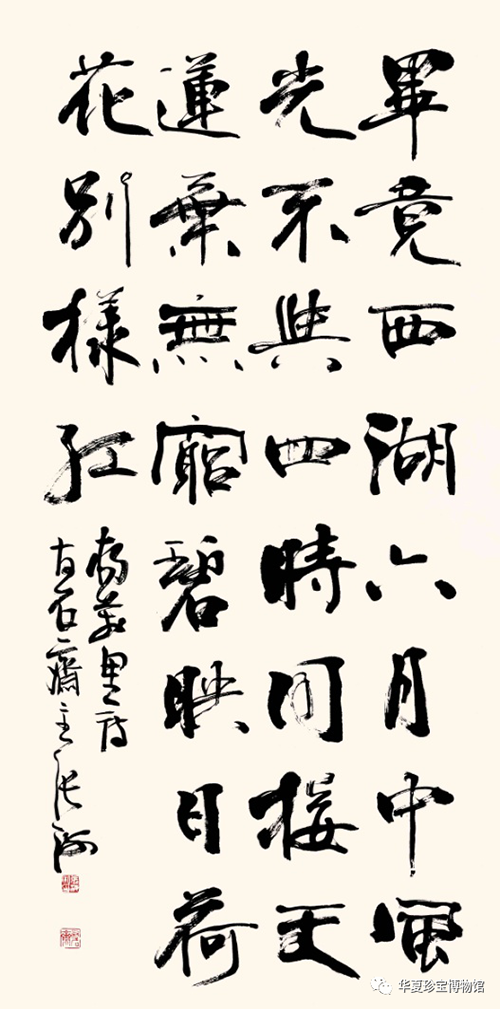 畢竟西湖六月中風
光不與四時同接天
蓮葉無窮碧映日荷
花別樣紅
楊萬里詩
石齋主張
华夏珍宝博物馆